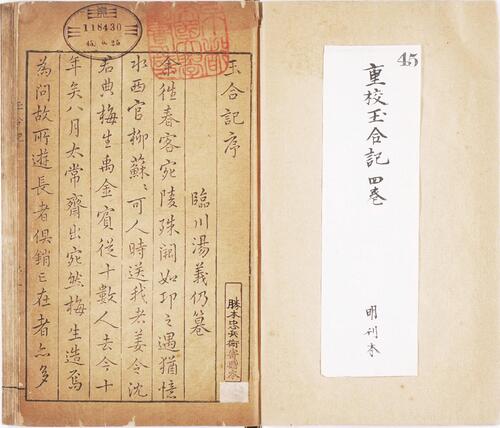 45
重校玉合記 四卷
明刊本
玉合記序
臨川湯義仍篹
余徃春客宛陵殊闕如邛之遇猶憶
水西官柳蘇〻可人時送我者姜令沈
君典梅生禹金賓從十數人去今十
年矣八月太常齋出宛然梅生造焉
為問故所遊長者俱銷亡在者亦多
勝本忠兵衛寄贈本
118430
玉合記